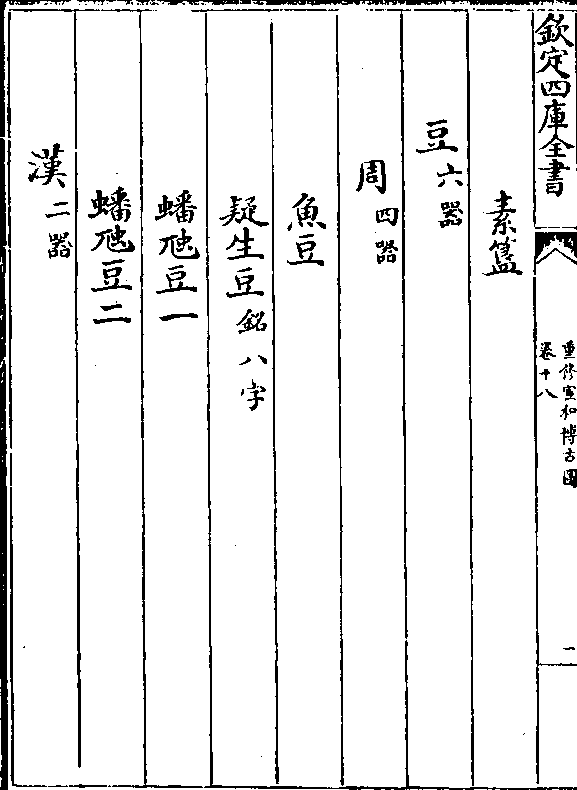 欽定四庫全書
重修宣和博古圖
卷十八
一
素簠
豆六器
周四器
魚豆
疑生豆銘八字
蟠虺豆一
蟠虺豆二
漢二器